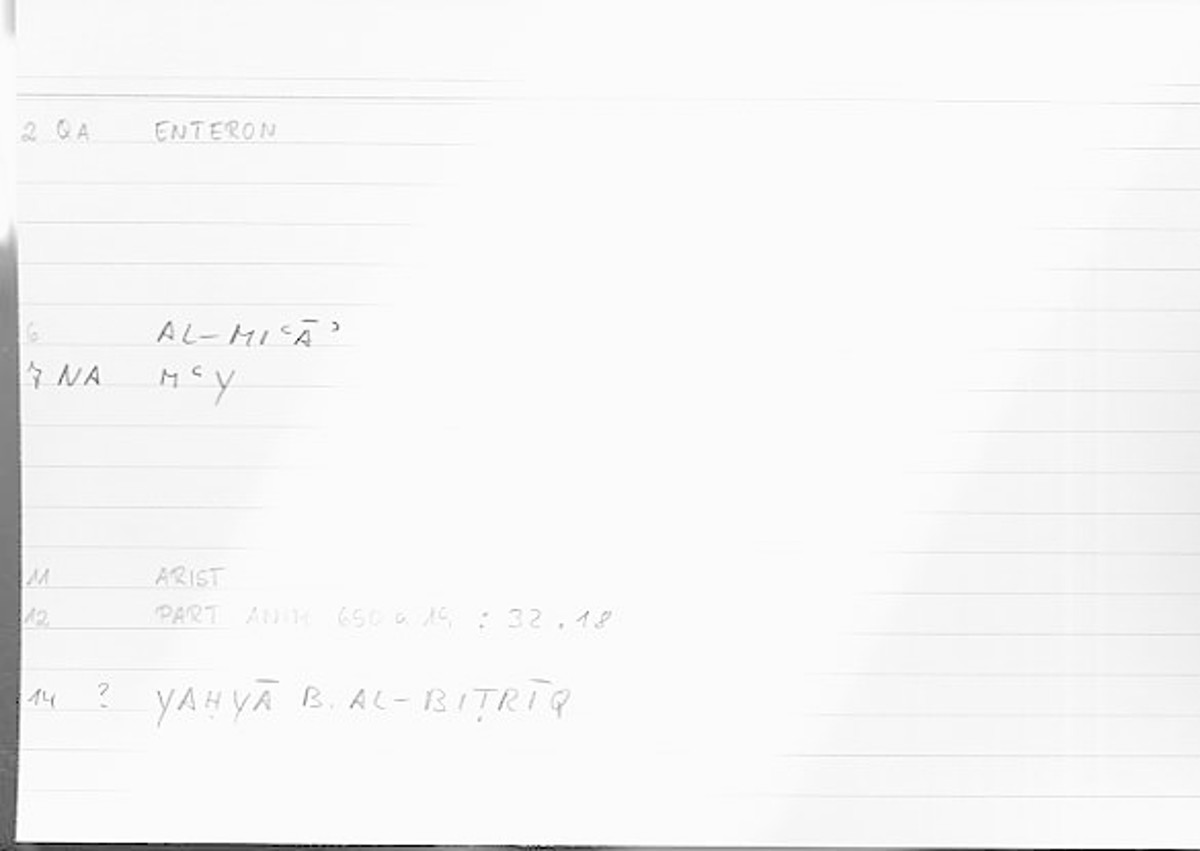 2 QA ENTERON
6 AL-MIʿĀʾ
7 NA MʿY
11 ARIST
12 PART ANIM 650 a 14 : 32.18
14 ? YAḤYĀ B. AL-BIṬRĪQ